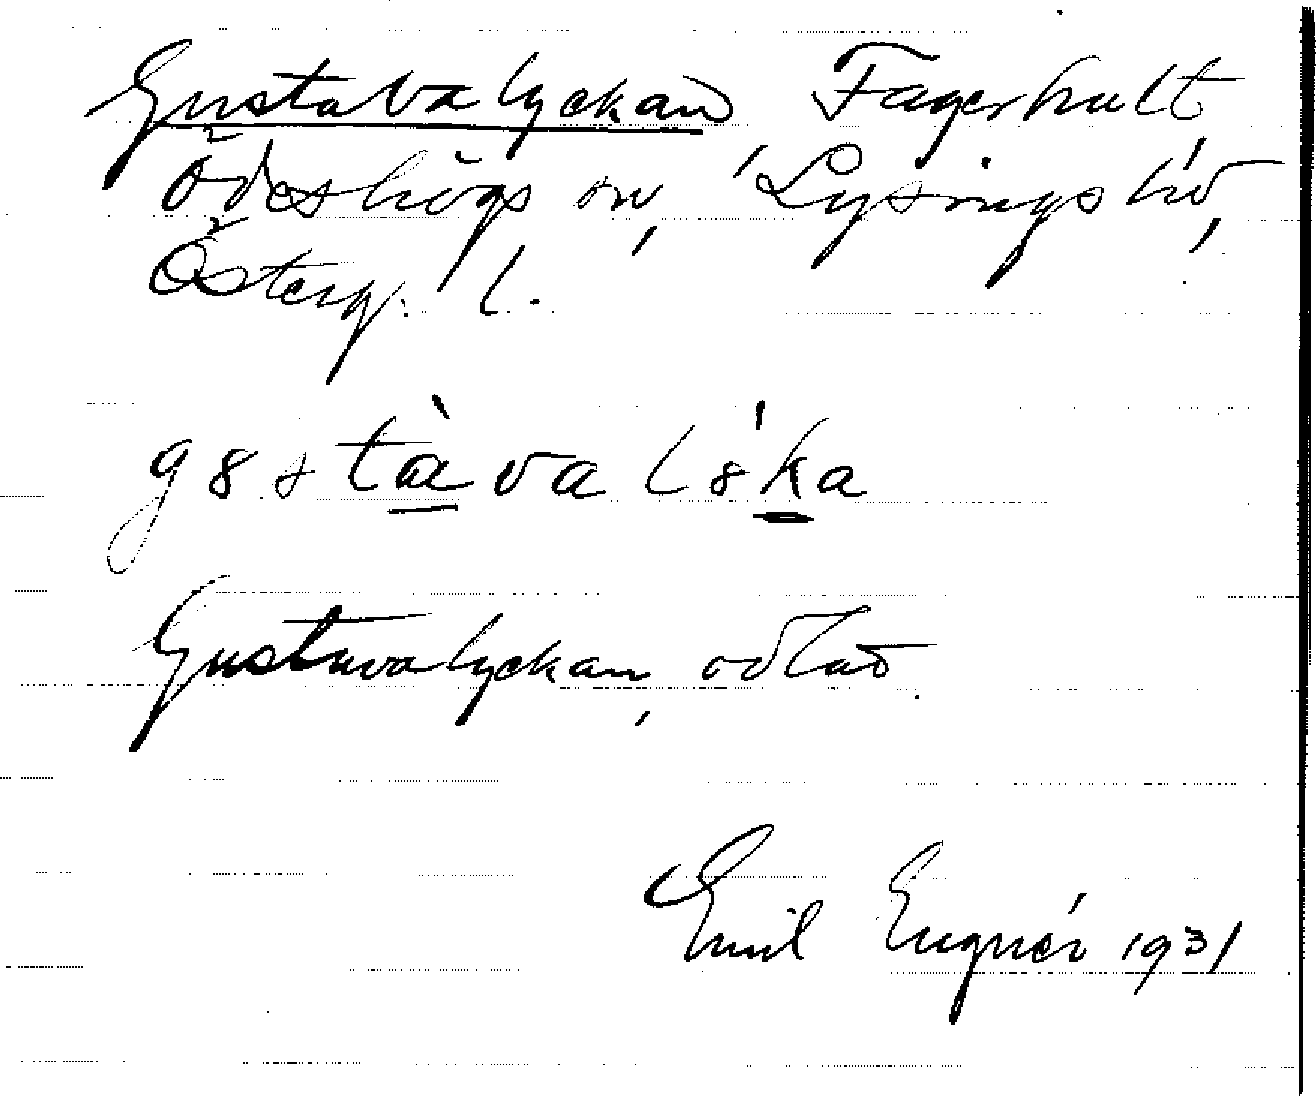 Gustavalyckan Fagerhult,
Ödeshögs sn, Lysings hd,
Österg. l.
g8stàval8́ka
Gustavalyckan, odlad.
Emil Engnér 1931